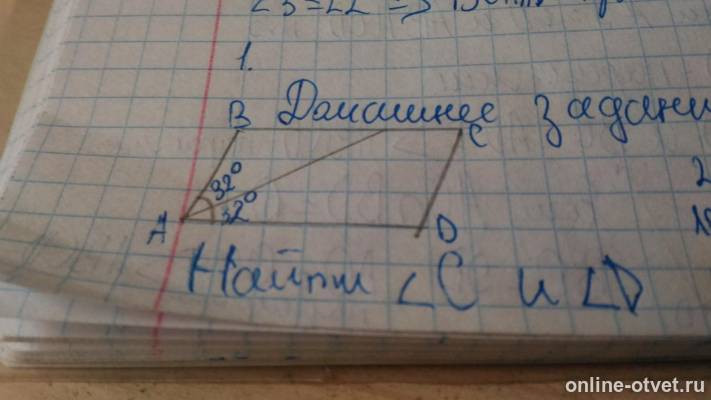 1.
Домашнее задани
B
C
32°
32°
A
D
Найти ∠C и ∠D
online-otvet.ru